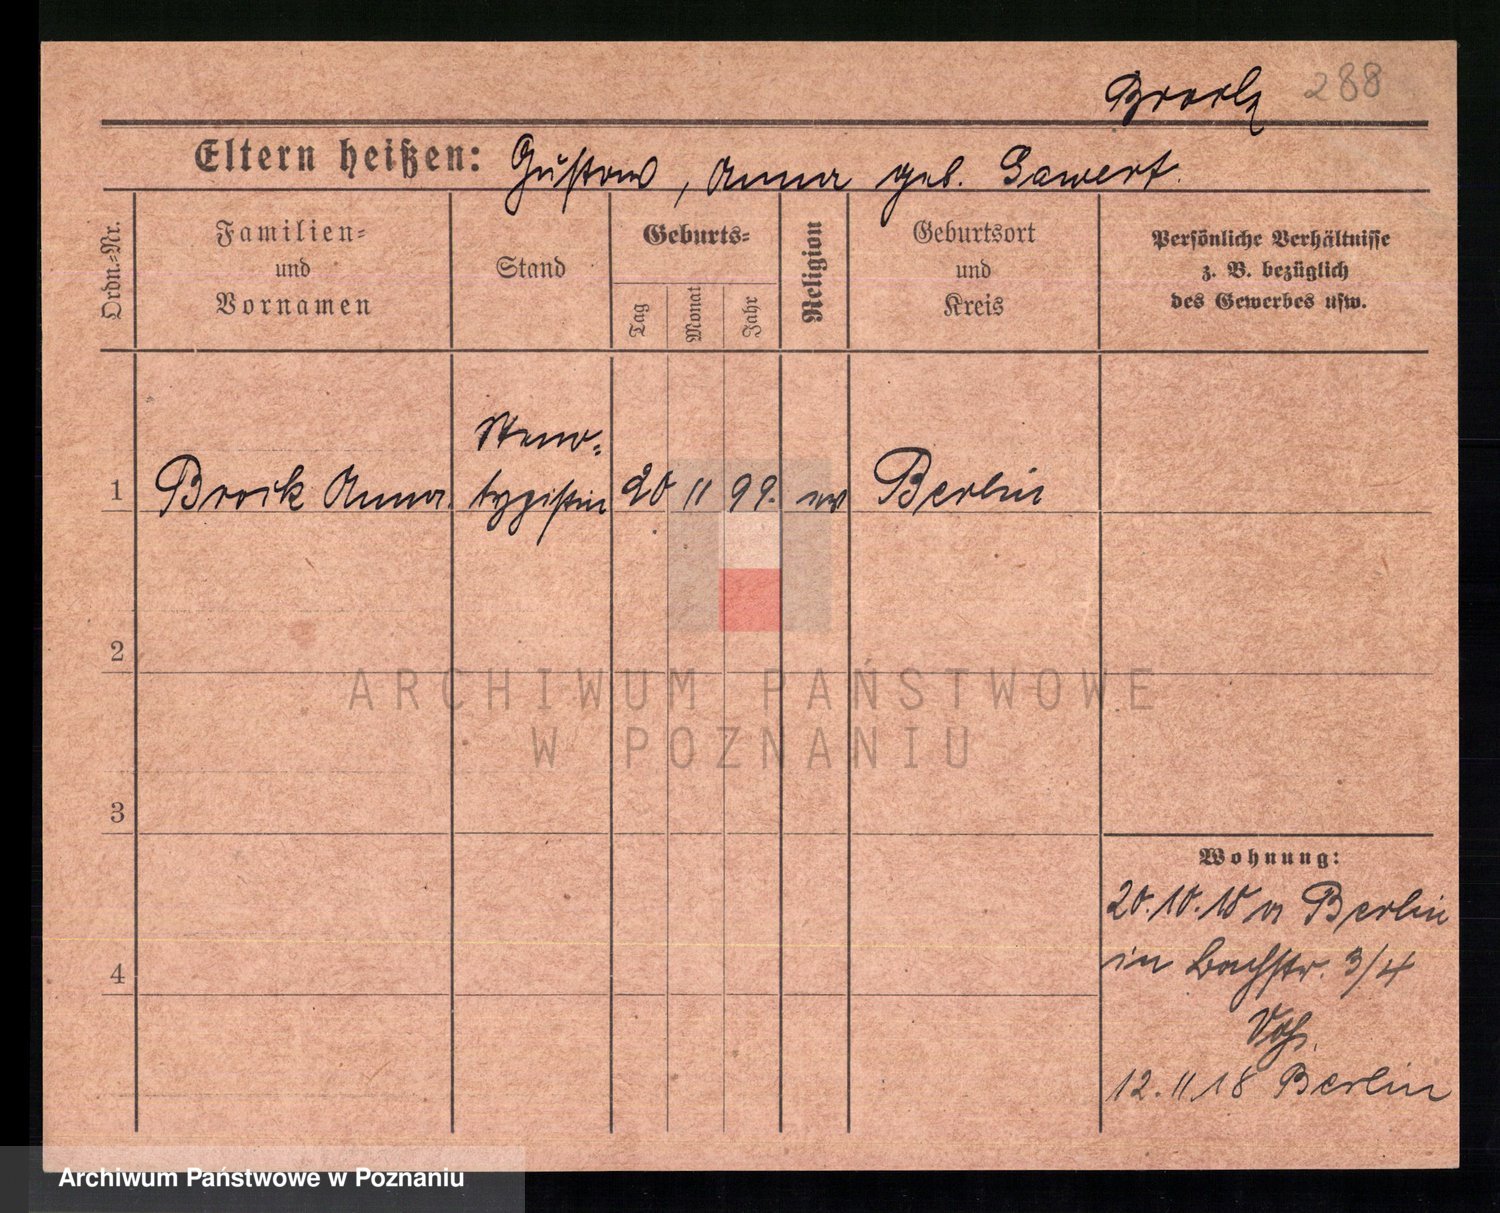 288
Eltern heißen: Gustav, Anna geb. Gawert.
Ordn.-Nr.
Familien-
und
Vornamen
Stand
Geburts-
Tag
Monat
Jahr
Religion
Geburtsort
und
Kreis
Persönliche Verhältnisse
z. B. bezüglich
des Gewerbes usw.
Steno-
1 Broik Anna. typistin 20 11 99. ev Berlin
2
3
4
Wohnung:
20.10.18 v Berlin
in Bachstr. 3/4
12.11.18 Berlin
ARCHIWUM PAŃSTWOWE
W POZNANIU
Archiwum Państwowe w Poznaniu